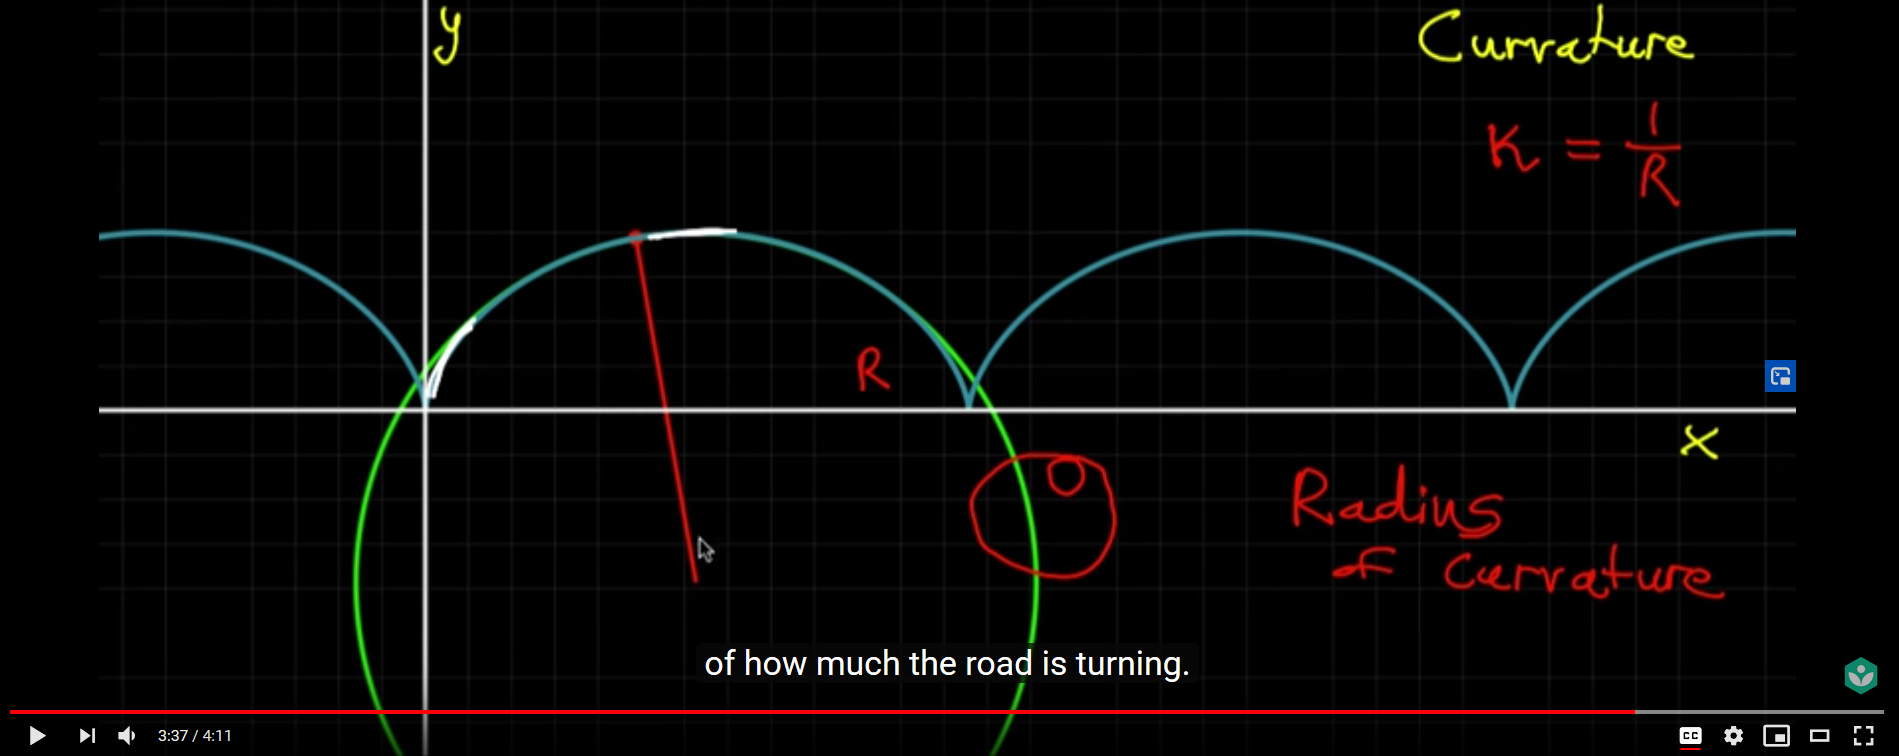 y
Curvature
K = 1/R
R
x
Radius
of Curvature
of how much the road is turning.
3:37 / 4:11
CC